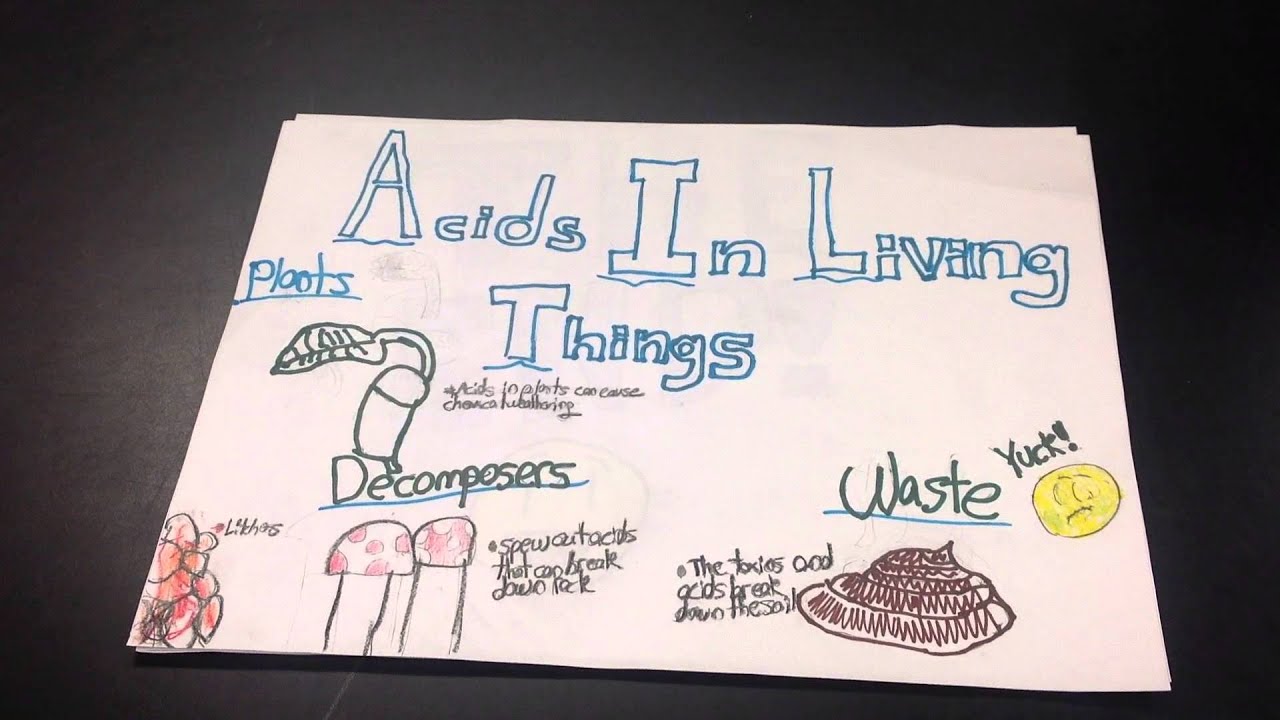 Acids In Living
Things
Plants
Acids in plants can cause
chemcal weathering
Decomposers
Litches
spew out acids
that can break
down rock
Waste
Yuck!!
The toxics and
acids break
down the soil